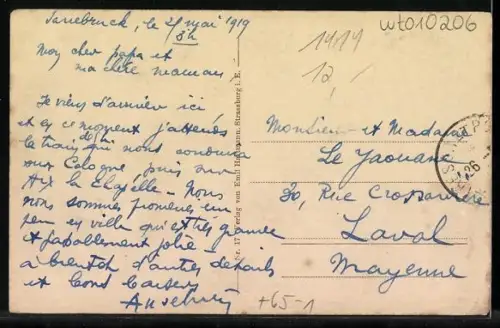 Sarrebruck, le 21 mai 1919
8h
Mon cher papa et
ma chère maman,
Je viens d'arriver ici
et en ce moment j'attends
le train qui nous conduira
sur Cologne, puis sur
Aix la Chapelle - Nous
nous sommes promenés un
peu en ville qui est très grande
et passablement jolie -
à bientôt d'autres détails
et bons baisers
wto10206
1919
12
Monsieur et Madame
Le Yaouanc
30, Rue Crossardière
Laval
Mayenne
+65-1
Verlag von Emil Hartmann, Strassburg i. E.